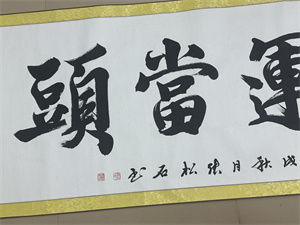 運當頭
戌秋月張松石书